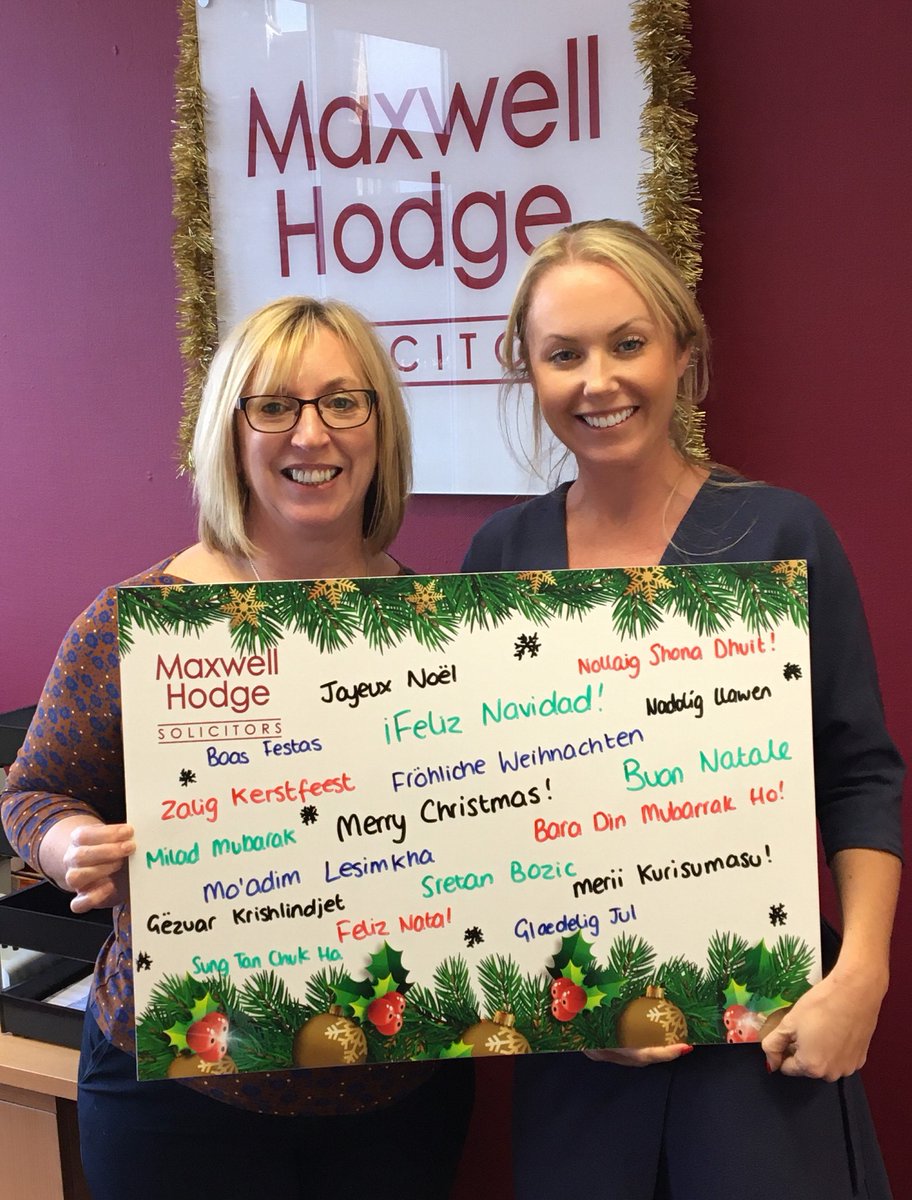 Maxwell
Hodge
CITO
Maxwell
Hodge
SOLICITORS
Joyeux Noël
Nollaig Shona Dhuit!
¡Feliz Navidad!
Nadolig Llawen
Boas Festas
Fröhliche Weihnachten
Buon Natale
Zalig Kerstfeest
Merry Christmas!
Bara Din Mubarrak Ho!
Milad Mubarak
Mo'adim Lesimkha
Sretan Bozic
merii Kurisumasu!
Gëzuar Krishlindjet
Feliz Natal
Glaedelig Jul
Sung Tan Chuk Ha